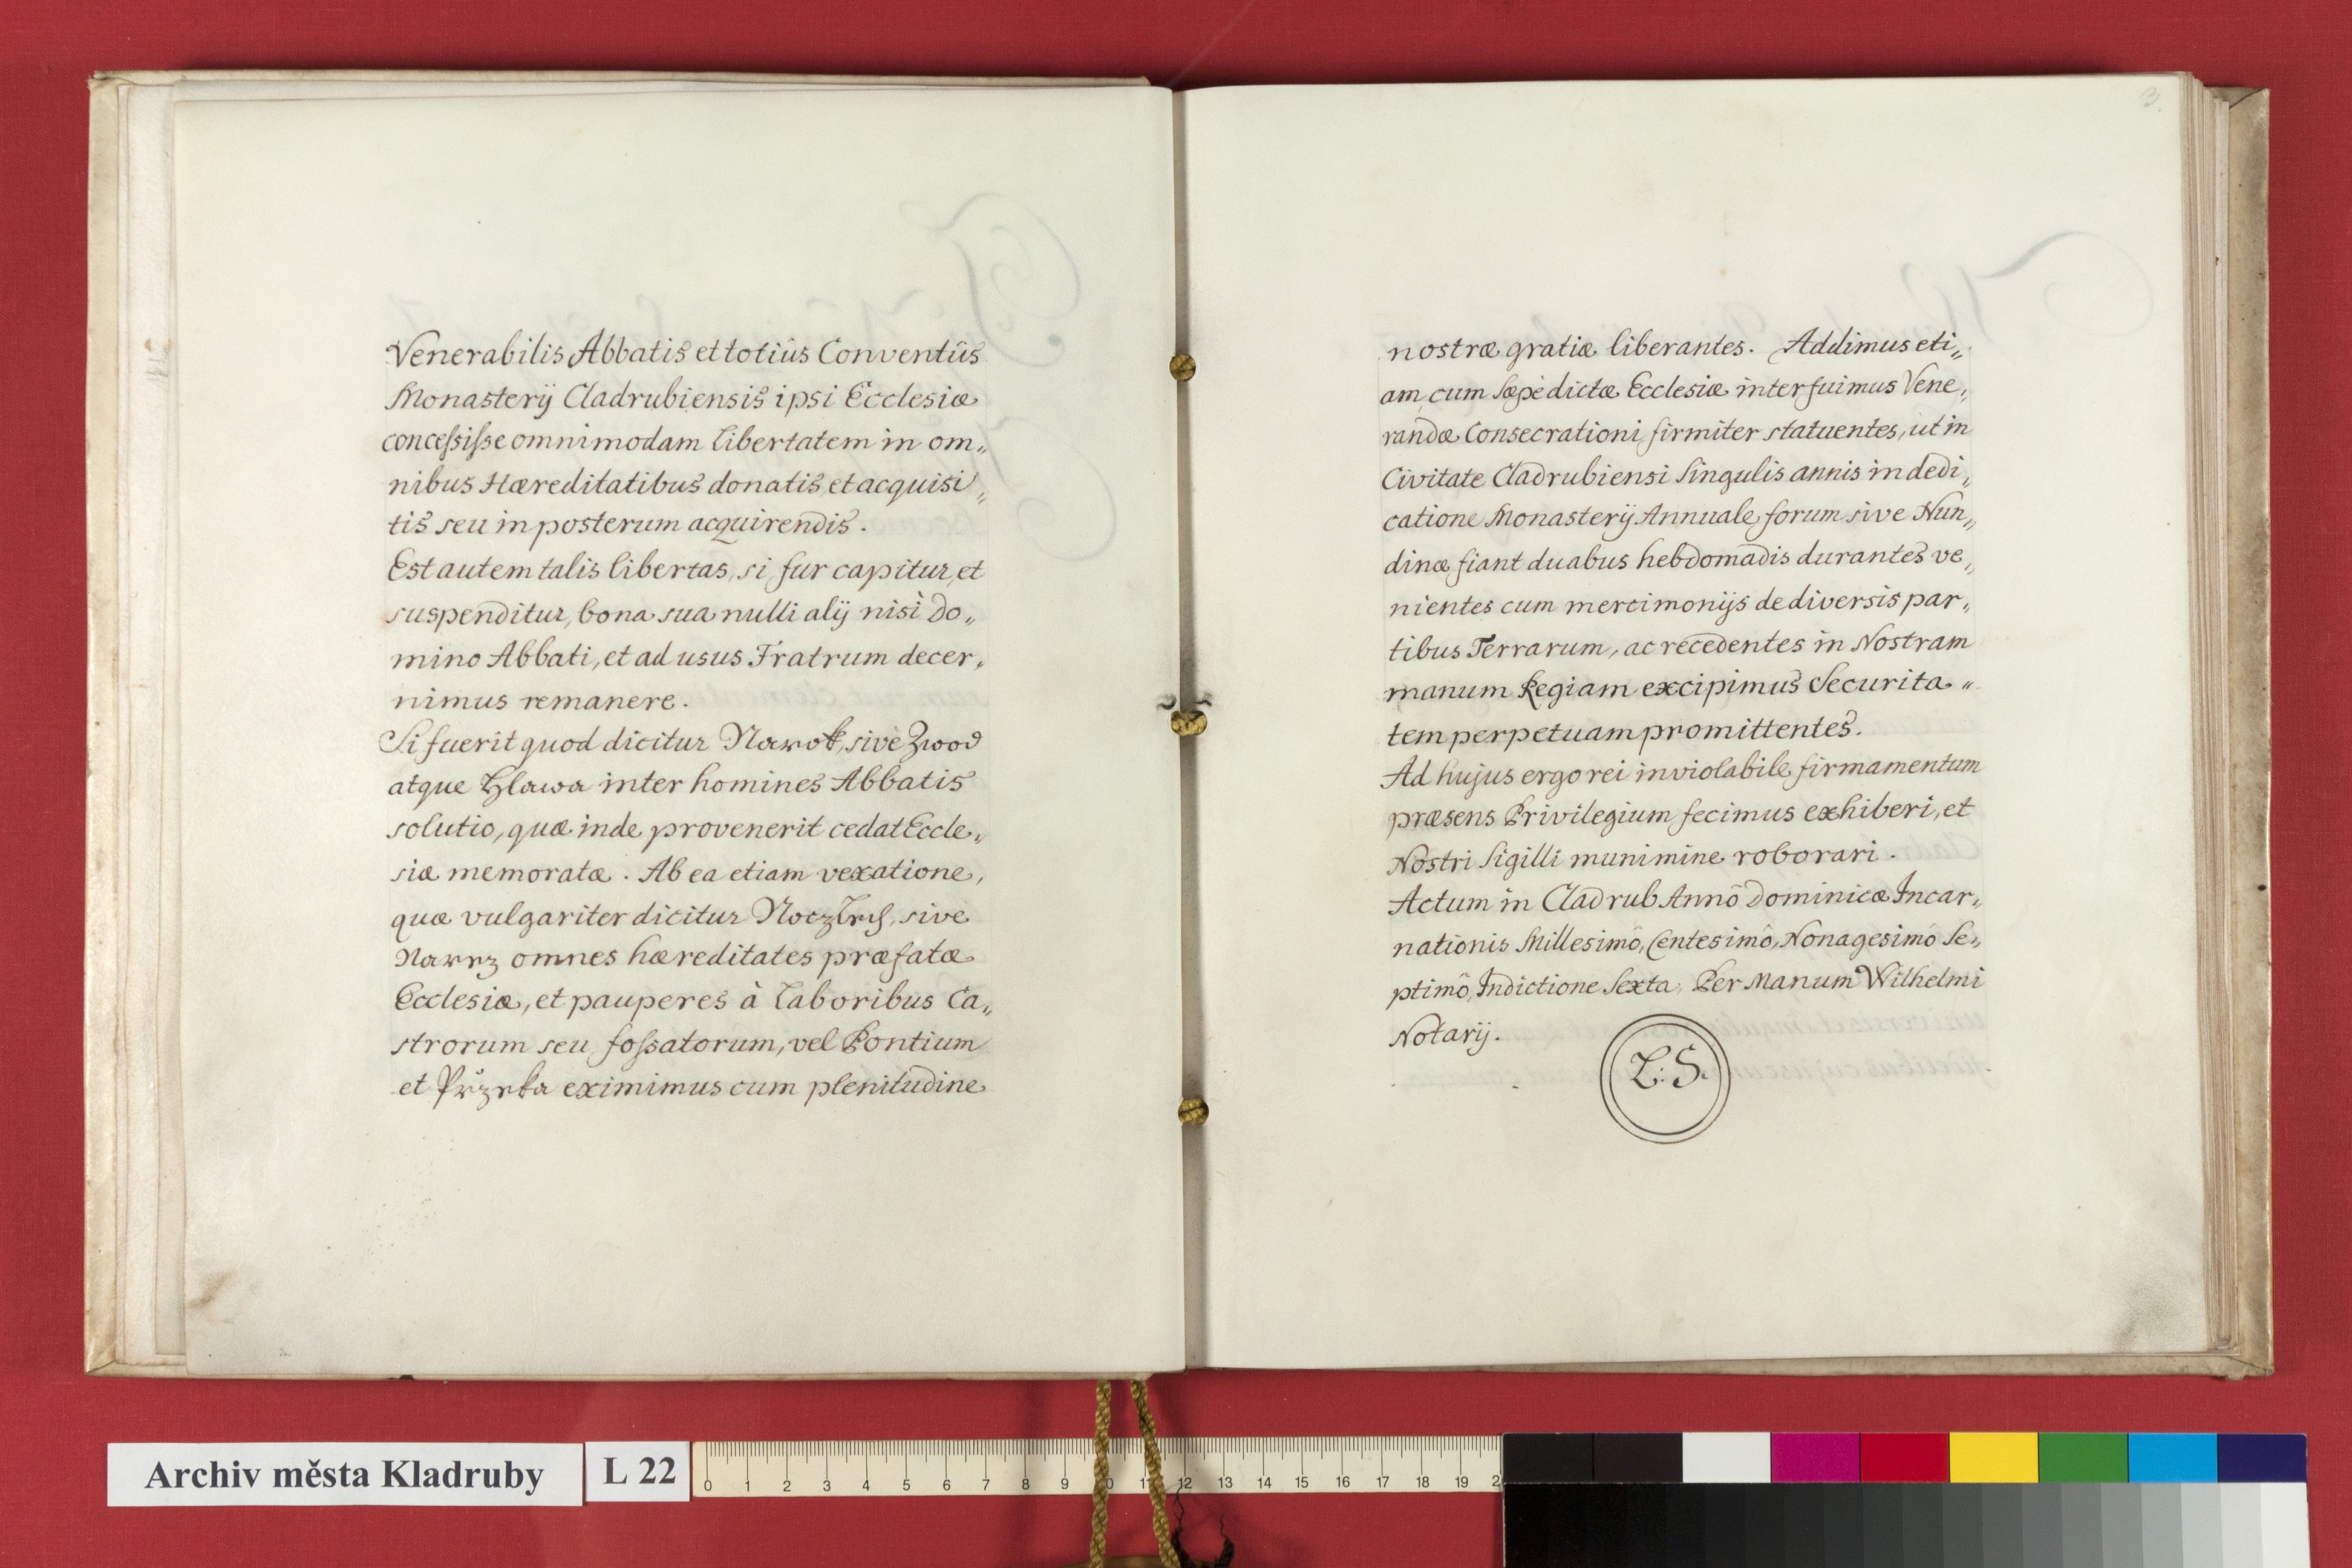 Venerabilis Abbatis et totiûs Conventûs
Monasterij Cladrubiensis ipsi Ecclesiæ
concessisse omnimodam libertatem in om„
nibus Hæreditatibus donatis, et acquisi„
tis seu in posterum acquirendis.
Est autem talis libertas, si fur capitur, et
suspenditur, bona sua nulli alij nisi Do„
mino Abbati, et ad usus Fratrum decer„
nimus remanere.
Si fuerit quod dicitur Narok, sive Zwod
atque Hlawa inter homines Abbatis
solutio, quæ inde provenerit cedat Eccle„
siæ memoratæ. Ab ea etiam vexatione,
quæ vulgariter dicitur sive
omnes hæreditates præfatæ
Ecclesiæ, et pauperes à laboribus Ca„
strorum seu fossatorum, vel Pontium
et eximimus cum plenitudine
3.
nostræ gratiæ liberantes. Addimus eti„
am, cum sæpè dictæ Ecclesiæ interfuimus Vene„
randæ Consecrationi, firmiter statuentes, ut in
Civitate Cladrubiensi Singulis annis in dedi„
catione Monasterij Annuale forum sive Nun„
dinæ fiant duabus hebdomadis durantes ve„
nientes cum mercimonijs de diversis par„
tibus Terrarum, ac recedentes in Nostram
manum Regiam excipimus Securita„
tem perpetuam promittentes.
Ad hujus ergo rei inviolabile firmamentum
præsens Privilegium fecimus exhiberi, et
Nostri Sigilli munimine roborari.
Actum in Cladrub Annô Dominicæ Incar„
nationis Millesimô, Centesimô, Nonagesimô Se„
ptimô, Indictione Sexta, Per Manum Wilhelmi
Notarij.
L: S.
Archiv města Kladruby
L 22
0 1 2 3 4 5 6 7 8 9 0 11 12 13 14 15 16 17 18 19 2